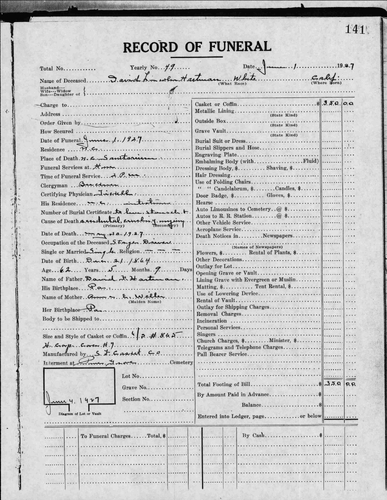 141
RECORD OF FUNERAL
Total No. Yearly No. 79 Date June 1 1927
Name of Deceased David Lincoln Hartman White Calif.
(What Race) (Where Born)
Husband—Wife—Widow
Son—Daughter of
Charge to
Address
Order Given by
How Secured
Date of Funeral June 1, 1927
Residence
Place of Death Sanitarium
Services at
Time of Service
Clergyman
Certifying Physician
His Residence
Number of Burial Certificate
Cause of Death accidental
(Primary) (Secondary)
Date of Death May 30, 1927
Occupation of the Deceased Stage Driver
Single or Married Single Religion
Date of Birth Dec. 21 1864
Age 62 Years 5 Months 9 Days
Name of Father David Hartman
His Birthplace Pa.
Name of Mother Ann
(Maiden Name)
Her Birthplace Pa.
Body to be Shipped to
Size and Style of Casket or Coffin
Manufactured by
Interment at Cemetery
Lot No.
Grave No.
Section No.
June 4, 1927
Diagram of Lot or Vault
Casket or Coffin $ 350 00
Metallic Lining
(State Kind)
Outside Box
(State Kind)
Grave Vault
(State Kind)
Burial Suit or Dress
Burial Slippers and Hose
Engraving Plate
Embalming Body (with Fluid)
Dressing Body, $ Shaving, $
Hair Dressing
Use of Folding Chairs
" " Candelabrum, $ Candles, $
Door Badge, $ Gloves, $
Hearse
Auto Limousines to Cemetery @ $
Autos to R. R. Station @ $
Aeroplane Service
Death Notices in Newspapers
(Names of Newspapers)
Flowers, $ Rental of Plants, $
Other Decorations
Outlay for Lot
Opening Grave or Vault
Lining Grave with Evergreen or Muslin
Matting, $ Tent Rental, $
Use of Lowering Device
Rental of Vault
Outlay for Shipping Charges
Removal Charges
Incineration
Personal Services
Singers
Church Charges, $ Minister, $
Telegrams and Telephone Charges
Pall Bearer Service
Total Footing of Bill $ 350 00
By Amount Paid in Advance $
Balance $
Entered into Ledger, page or below.
To Funeral Charges Total, $ By Cash $